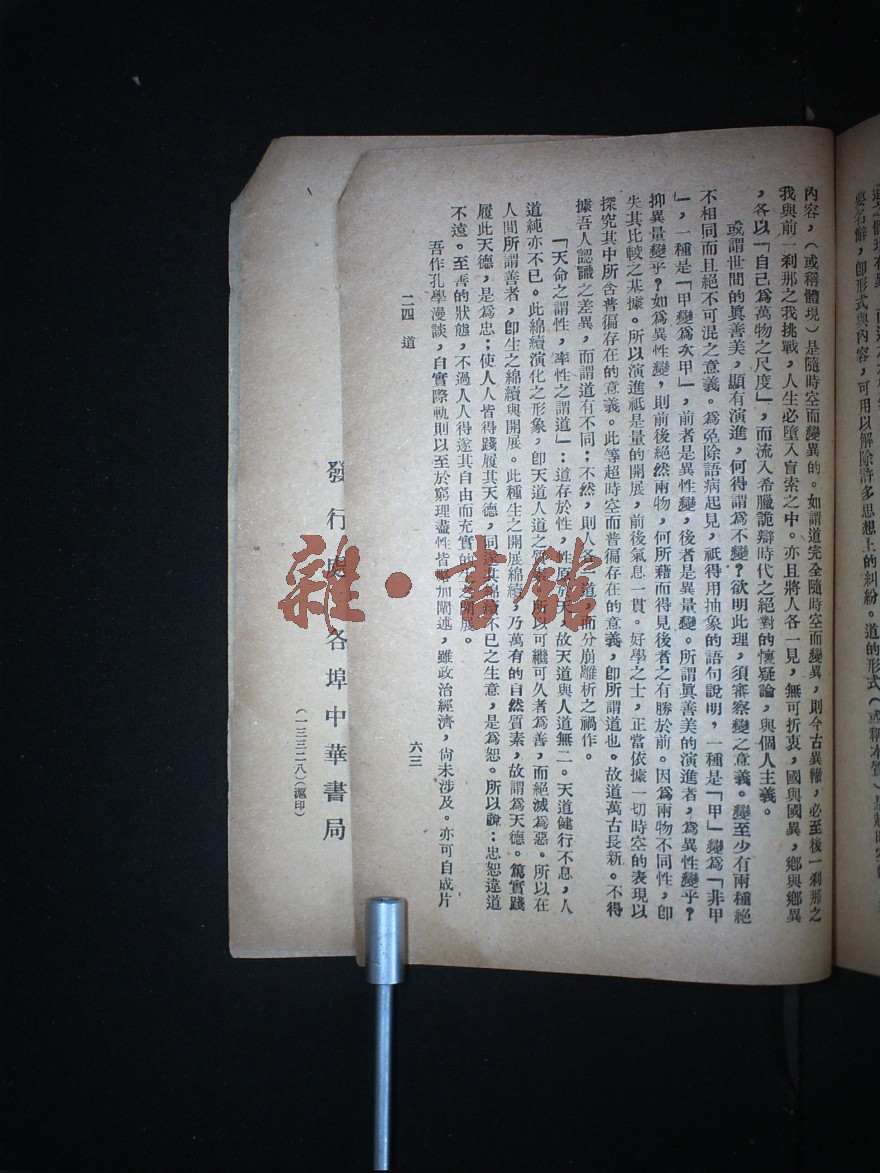 要名辭，卽形式與內容，可用以解除許多思想上的糾紛。道的形式（或稱本質）是超時空
內容，（或稱體現）是隨時空而變異的。如謂道完全隨時空而變異，則今古異轍，必至後一剎那之
我與前一剎那之我挑戰，人生必墮入盲索之中。亦且將人各一見，無可折衷，國與國異，鄉與鄉異
，各以「自己爲萬物之尺度」，而流入希臘詭辯時代之絕對的懷疑論，與個人主義。
或謂世間的眞善美，顯有演進，何得謂爲不變？欲明此理，須審察變之意義。變至少有兩種絕
不相同而且絕不可混之意義。爲免除語病起見，祇得用抽象的語句說明，一種是「甲」變爲「非甲
」，一種是「甲變爲次甲」，前者是異性變，後者是異量變。所謂眞善美的演進者，爲異性變乎？
抑異量變乎？如爲異性變，則前後絕然兩物，何所藉而得見後者之有勝於前。因爲兩物不同性，卽
失其比較之基據。所以演進祇是量的開展，前後氣息一貫。好學之士，正當依據一切時空的表現以
探究其中所含普徧存在的意義。此等超時空而普徧存在的意義，卽所謂道也。故道萬古長新。不得
據吾人認識之差異，而謂道有不同；不然，則人各一道，而分崩離析之禍作。
「天命之謂性，率性之謂道」：道存於性，性原於天，故天道與人道無二。天道健行不息，人
道純亦不已。此綿續演化之形象，卽天道人道之。所以可繼可久者為善，而絕滅為惡。所以在
人間所謂善者，卽生之綿續與開展。此種生之開展綿續，乃萬有的自然質素，故謂爲天德。篤實踐
履此天德，是爲忠；使人人皆得踐履其天德，同遂其綿續不已之生意，是爲恕。所以說：忠恕違道
不遠。至善的狀態，不過人人得遂其自由而充實的開展。
吾作孔學漫談，自實際軌則以至於窮理盡性皆略加闡述，雖政治經濟，尙未涉及。亦可自成片
二四　道
六三
發行　各埠中華書局
（一三三二八）（滬印）
雜·書館